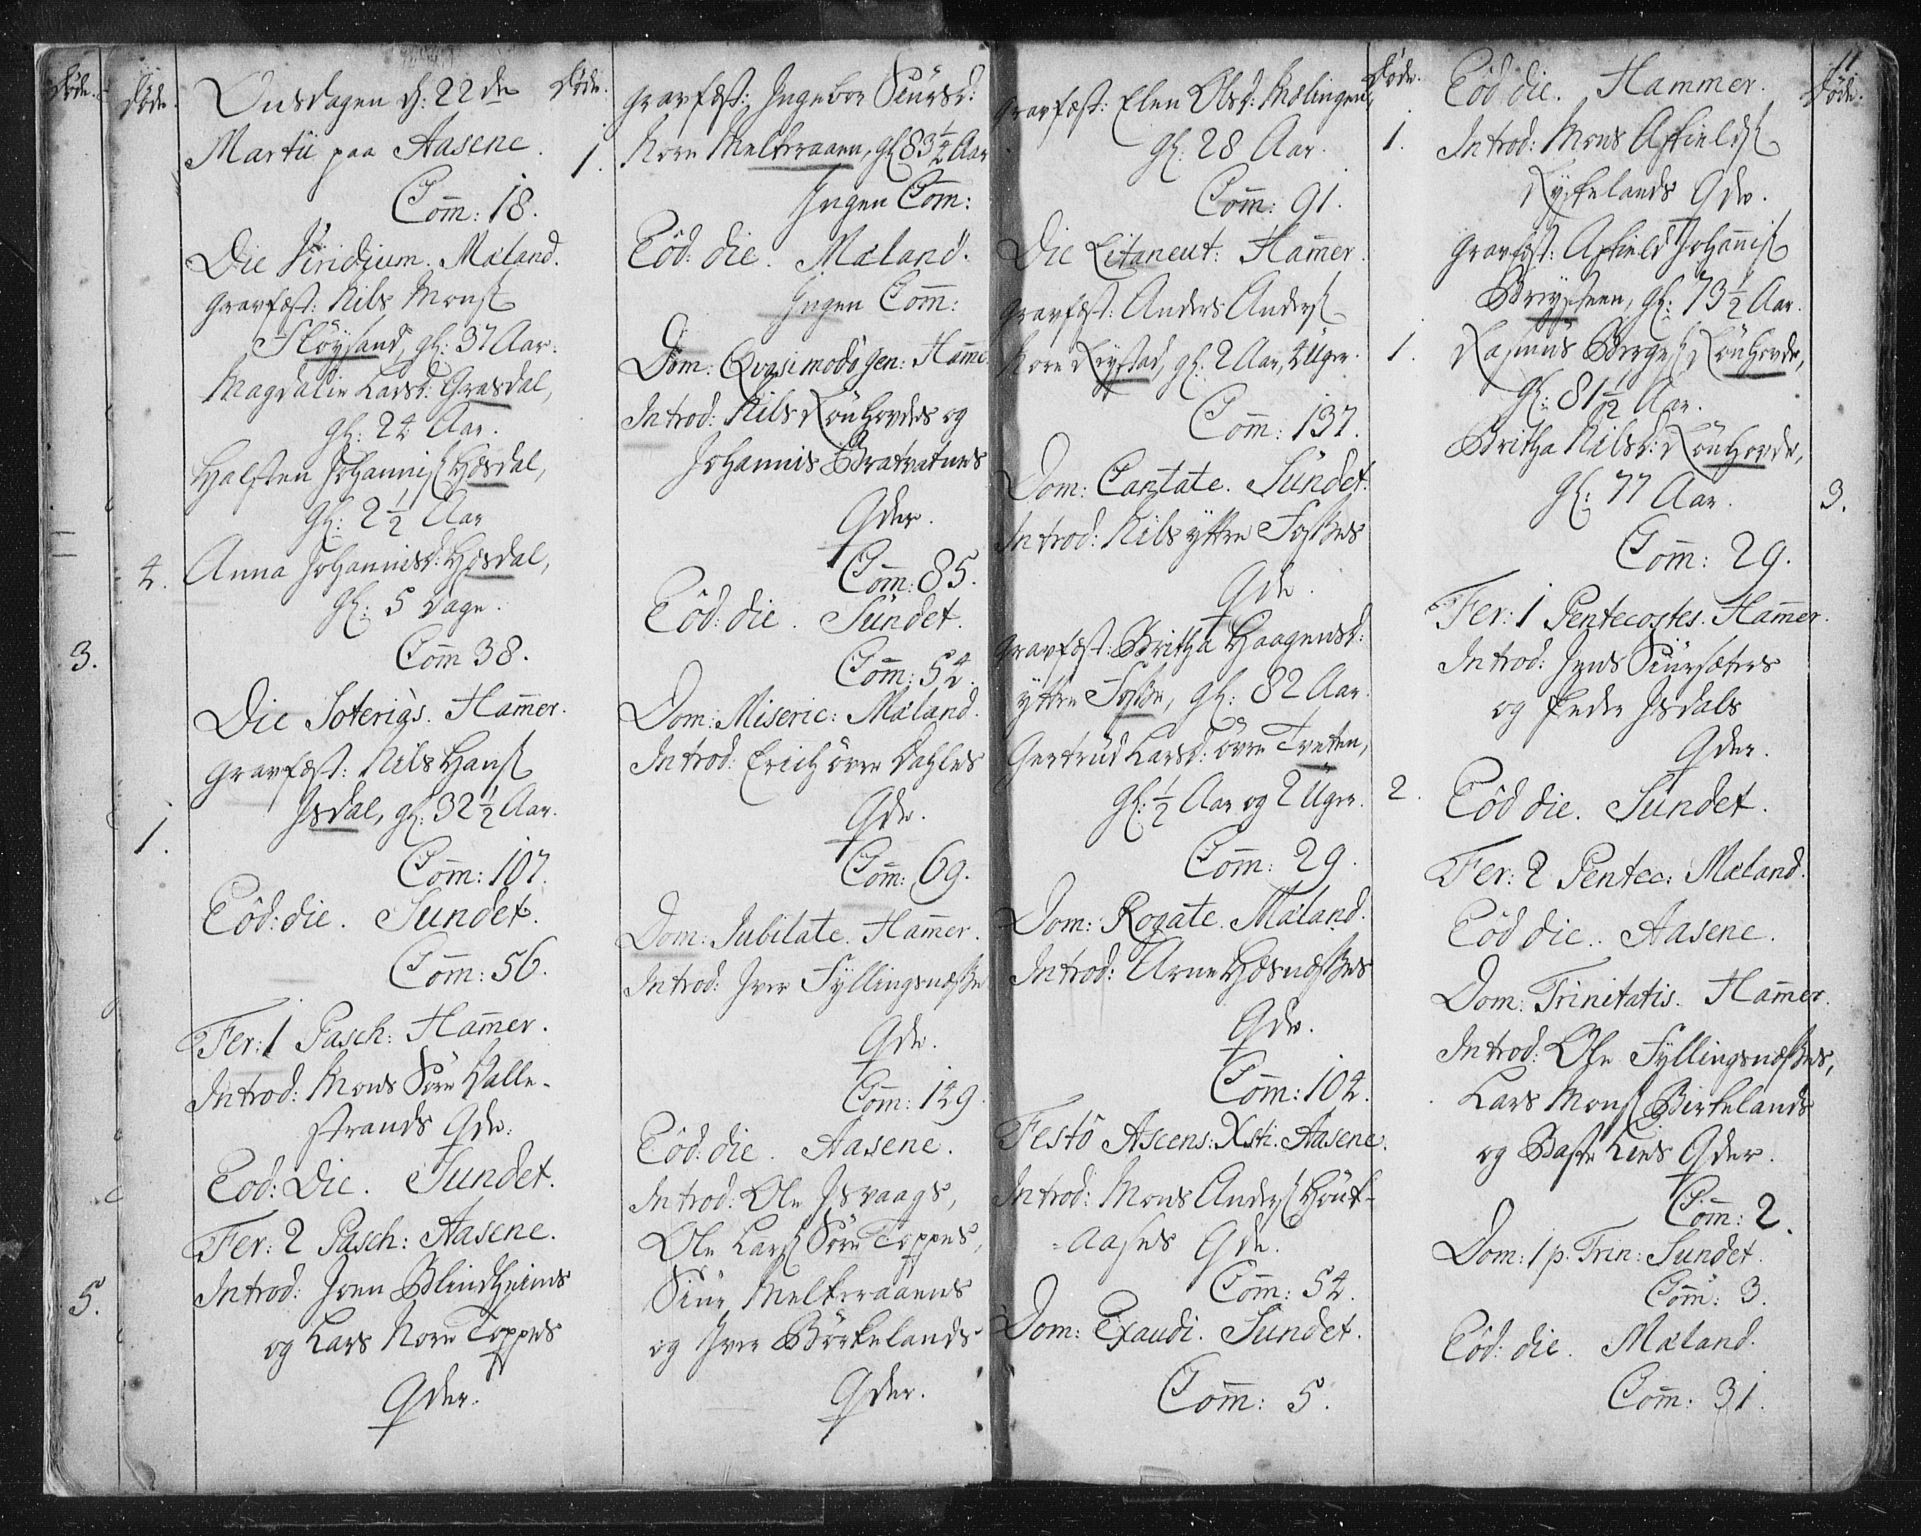 Døde.
3.
5.
Døde.
4.
1.
Onsdagen d: 22de
Martii paa Aasene.
Com̄: 18.
Die Viridium. Mæland.
Gravfæst: Nils Mons
Fløysand, gl: 37 Aar.
Magdalin Larsd: Grasdal,
gl: 24 Aar.
Halsten Johannis Hosdal,
gl: 2½ Aar
Anna Johannisd: Hosdal,
gl: 5 Dage.
Com̄ 38.
Die Soteriās. Ham̄er.
Gravfæst: Nils Hans
Isdal, gl: 32½ Aar.
Com̄: 107.
Eôd: die. Sundet.
Com̄: 56.
Fer: 1 Pasch: Ham̄er.
Introd: Mons Søre Qvalle-
strands Qde.
Eôd: Die. Sundet.
Fer: 2 Pasch: Aasene.
Introd: Joen Blindheims
og Lars Nore Toppes
Qder.
Døde.
1.
Gravfæst: Ingebor Siursd:
Nore Melkeraaen, gl 83½ Aar
Ingen Com̄:
Eôd: die. Mæland.
Ingen Com̄:
Dom: Qvasimodogen: Ham̄e
Introd: Nils Rønhovdes og
Johannis Bratvatnes
Qder.
Com̄: 85.
Eôd: die. Sundet.
Com̄: 54.
Dom: Miseric: Mæland.
Introd: Erich øvre Dahles
Qde.
Com̄: 69.
Dom: Jubilate. Ham̄er.
Introd: Iver Fyllingsnæsse
Qde.
Com̄: 149.
Eôd: die. Aasene.
Introd: Ole Isvaags,
Ole Lars Søre Toppes,
Siur Melkeraaens
og Iver Börkelands
Qder.
Gravfæst: Elen Olsd: Mælingen,
gl: 28 Aar.
Com̄: 91.
Die Litaneut: Ham̄er.
Gravfæst: Anders Anders
Nore Rystad, gl: 2 Aar, 4 Uger.
Com̄: 137.
Dom: Cantate. Sundet.
Introd: Nils yttre Fosses
Qde.
Gravfæst: Britha Haagensd:
yttre Fosse, gl: 82 Aar.
Gertrud Larsd: övre Tveten,
gl: ½ Aar og 2 Uger.
Com̄: 29.
Dom: Rogate. Mæland.
Introd: Arne Hosnæsses
Qde.
Com̄: 104.
Festô Ascens: Xsti. Aasene.
Introd: Mons Anders Houk-
=aases Qde.
Com̄: 54.
Dom: Exaudi. Sundet.
Com̄: 5.
Døde.
1.
1.
2.
Eôd die. Hammer.
Introd: Mons Askields
Rykelands Qde.
Gravfæst: Askield Johannis
Brysteen, gl: 73½ Aar.
Rasmus Børges Rønhovde,
gl: 81½ Aar.
Britha Nilsd: Rønhovde,
gl: 77 Aar.
Com̄: 29.
Fer: 1 Pentecostes. Ham̄er.
Introd: Jens Siursæters
og Peder Isdals
Qder.
Eôd die. Sundet.
Fer: 2 Pentec: Mæland.
Eôd die. Aasene.
Dom: Trinitatis. Ham̄er.
Introd: Ole Fyllingsnæsses,
Lars Mons Birkelands
og Baste Lies Qder.
Com̄: 2.
Dom: 1 p. Trin: Sundet.
Com̄: 3.
Eôd: die. Mæland.
Com̄: 31.
11
Døde.
3.